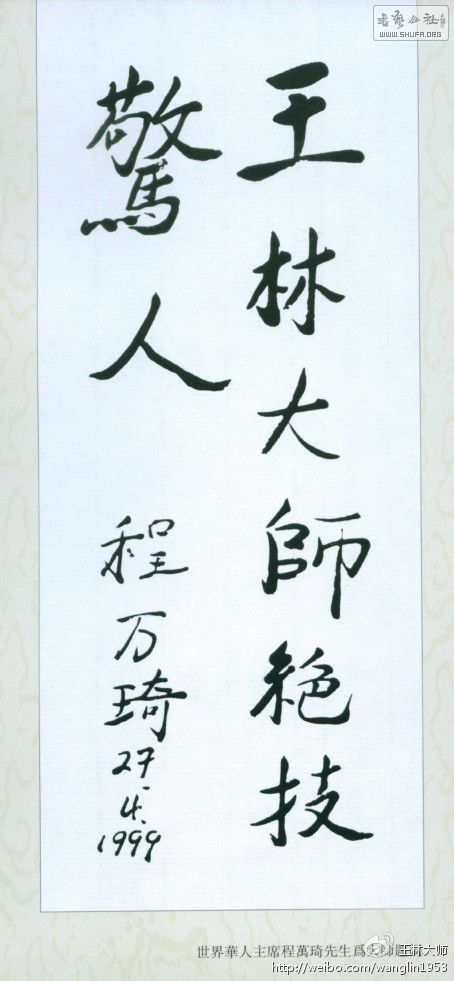 书艺公社
www.SHUFA.ORG
王林大師絶技
驚人
程万琦
27
4.
1999
世界華人主席程萬琦先生爲
王林大师
http://weibo.com/wanglin1953